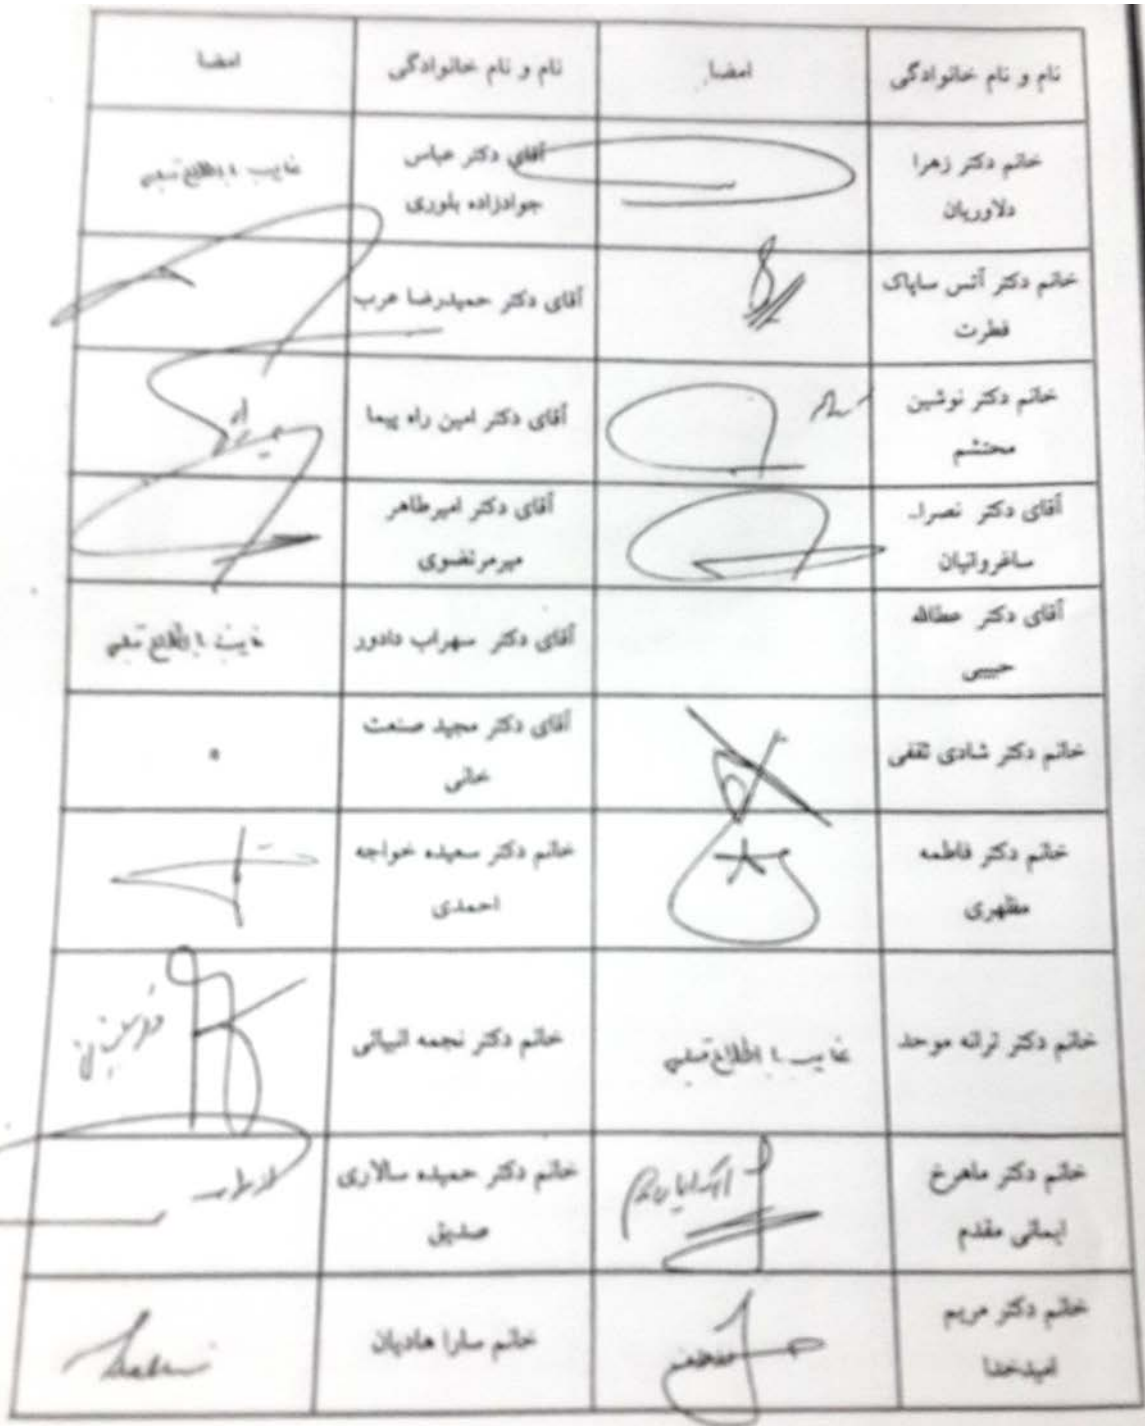 نام و نام خانوادگی
امضا
نام و نام خانوادگی
امضا
خانم دکتر زهرا
دلاوریان
آقای دکتر عباس
جوادزاده بلوری
غایب با اطلاع قبلی
خانم دکتر آتس ساپاک
فطرت
آقای دکتر حمیدرضا عرب
خانم دکتر نوشین
محتشم
آقای دکتر امین راه پیما
آقای دکتر نصرا..
ساغروانیان
آقای دکتر امیرطاهر
میرمرتضوی
آقای دکتر عطاالله
حبیبی
آقای دکتر سهراب دادور
غایب با اطلاع قبلی
خانم دکتر شادی ثقفی
آقای دکتر مجید صنعت
خانی
خانم دکتر فاطمه
مظهری
خانم دکتر سعیده خواجه
احمدی
خانم دکتر ترانه موحد
غایب با اطلاع قبلی
خانم دکتر نجمه انبیائی
خانم دکتر ماهرخ
ایمانی مقدم
خانم دکتر حمیده سالاری
صدیق
خانم دکتر مریم
امیدخدا
خانم سارا هادیان